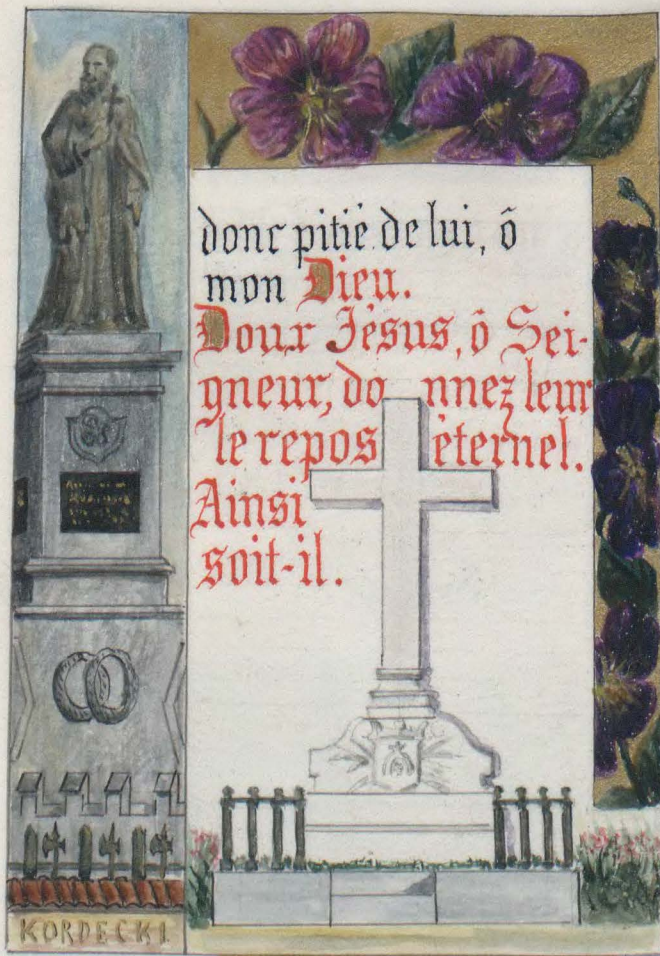 donc pitié de lui, ô
mon Dieu.
Doux Jésus, ô Sei-
gneur, donnez leur
le repos éternel.
Ainsi
soit-il.
KORDECKI